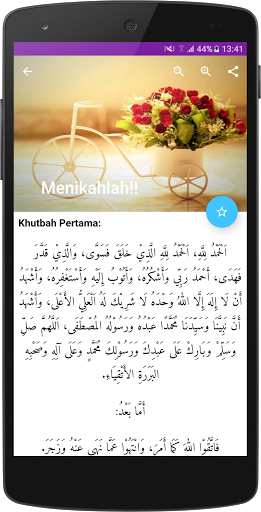 44% 13:41
Menikahlah!!
Khutbah Pertama:
اَلْحَمْدُ لِلَّهِ، اَلْحَمْدُ لِلَّهِ الَّذِيْ خَلَقَ فَسَوَّى، وَالَّذِيْ قَدَّرَ
فَهَدَى، أَحْمَدُ رَبِّي وَأَشْكُرُهُ، وَأَتُوْبُ إِلَيْهِ وَأَسْتَغْفِرُهُ، وَأَشْهَدُ
أَنْ لَا إِلَهَ إِلَّا اللهُ وَحْدَهُ لَا شَرِيْكَ لَهُ العَلِيُّ الأَعْلَى، وَأَشْهَدُ
أَنَّ نَبِيَّنَا وَسَيِّدَنَا مُحَمَّدًا عَبْدُهُ وَرَسُوْلُهُ المُصْطَفَى، اَللَّهُمَّ صَلِّ
وَسَلِّمْ وَبَارِكْ عَلَى عَبْدِكَ وَرَسُوْلِكَ مُحَمَّدٍ وَعَلَى آلِهِ وَصَحْبِهِ
البَرَرَةِ الأَتْقِيَاءِ.
أَمَّا بَعْدُ:
فَاتَّقُوْا اللهَ كَمَا أَمَرَ، وَانْتَهُوْا عَمَّا نَهَى عَنْهُ وَزَجَرَ.